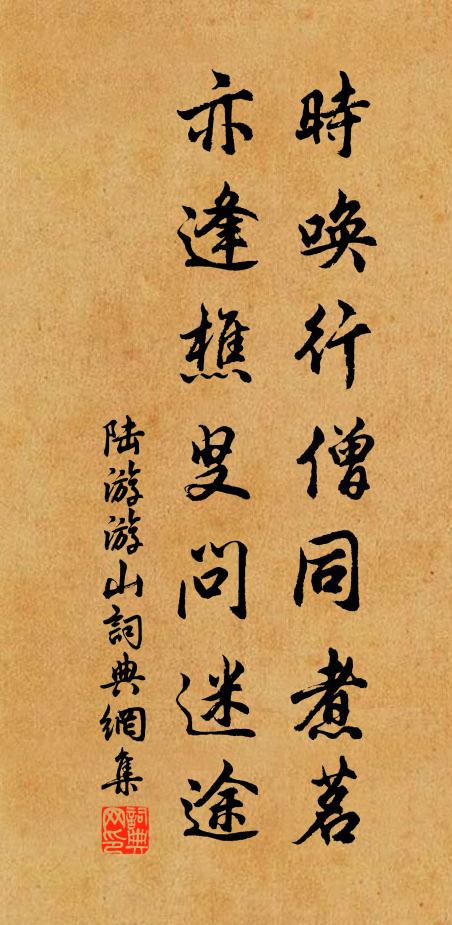 時唤行僧同煮茗
亦逢樵叟問迷途
陆游游山詞典網集
詞典网印